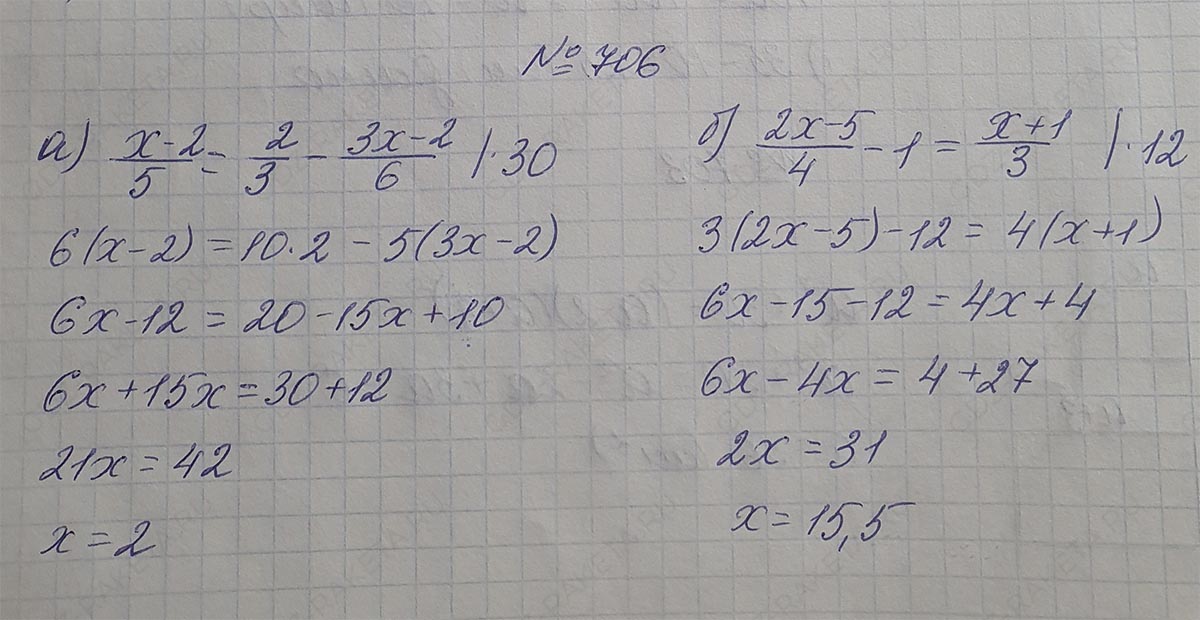 № 706
а) (x-2)/5 = 2/3 - (3x-2)/6 |·30
6(x-2) = 10·2 - 5(3x-2)
6x-12 = 20-15x+10
6x+15x = 30+12
21x = 42
x = 2
б) (2x-5)/4 - 1 = (x+1)/3 |·12
3(2x-5)-12 = 4(x+1)
6x-15-12 = 4x+4
6x-4x = 4+27
2x = 31
x = 15,5